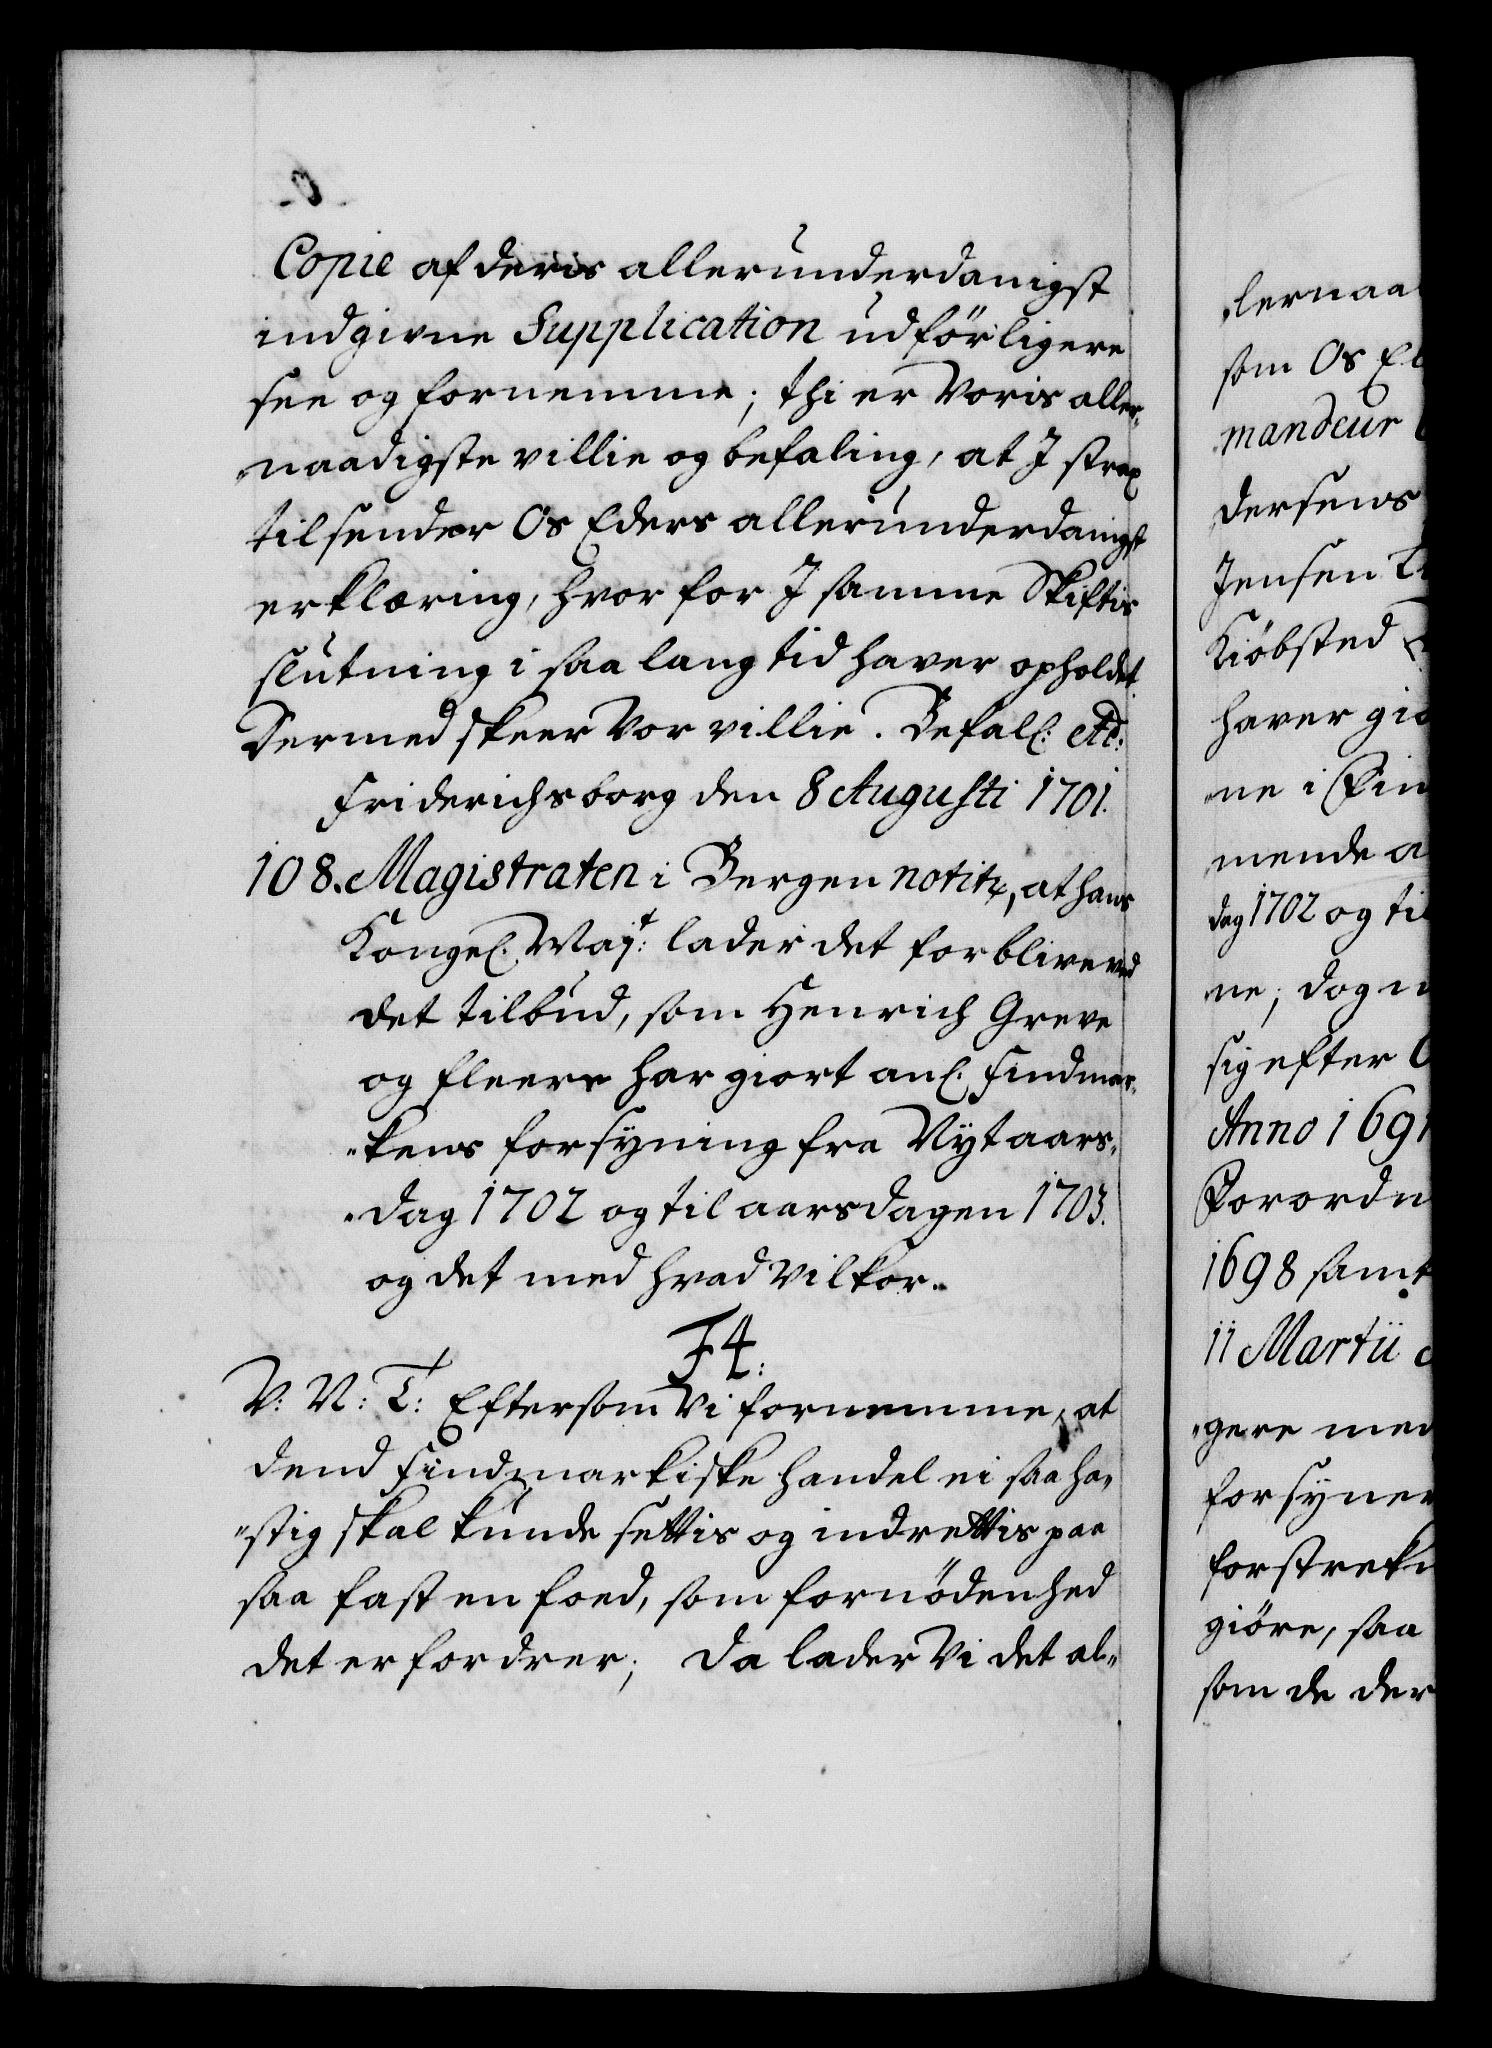 Copie af deris allerunderdanigst
indgivne Supplication udförligere
see og fornemme; thi er Voris aller„
„naadigste villie og befaling, at I strax
tilsender Os Eders allerunderdanigst
erklæring, hvor for I samme Skiftis
slutning i saa lang tid haver opholdet.
Dermed skeer Vor villie. Befal: etc:
Friderichsborg den 8 Augusti 1701.
108. Magistraten i Bergen notitz, at hans
Kongel. Mayt: lader det forblive ved
det tilbud, som Henrich Greve
og fleere har giort anl. Findmar„
„kens forsyning fra Nyt aars„
„dag 1702 og til aarsdagen 1703.
og det med hvad Vilkor.
F4.
V: N: T: Eftersom Vi fornemme, at
dend Findmarkiske handel ei saa ha„
„stig skal kunde settis og indrettis paa
saa fast en foed, som fornödenhed
det erfordrer; da lader Vi det al„
„lernaa
som Os El
mandeur
dersens
Jensen
Kiöbsted
haver gio
ne i Fin
mende a
dag 1702 og til
ne; dog
sig efter
Anno 1691
Forordn
1698 samt
11 Martii
„gere med
forsyner
forstrek
giöre, saa
som de der